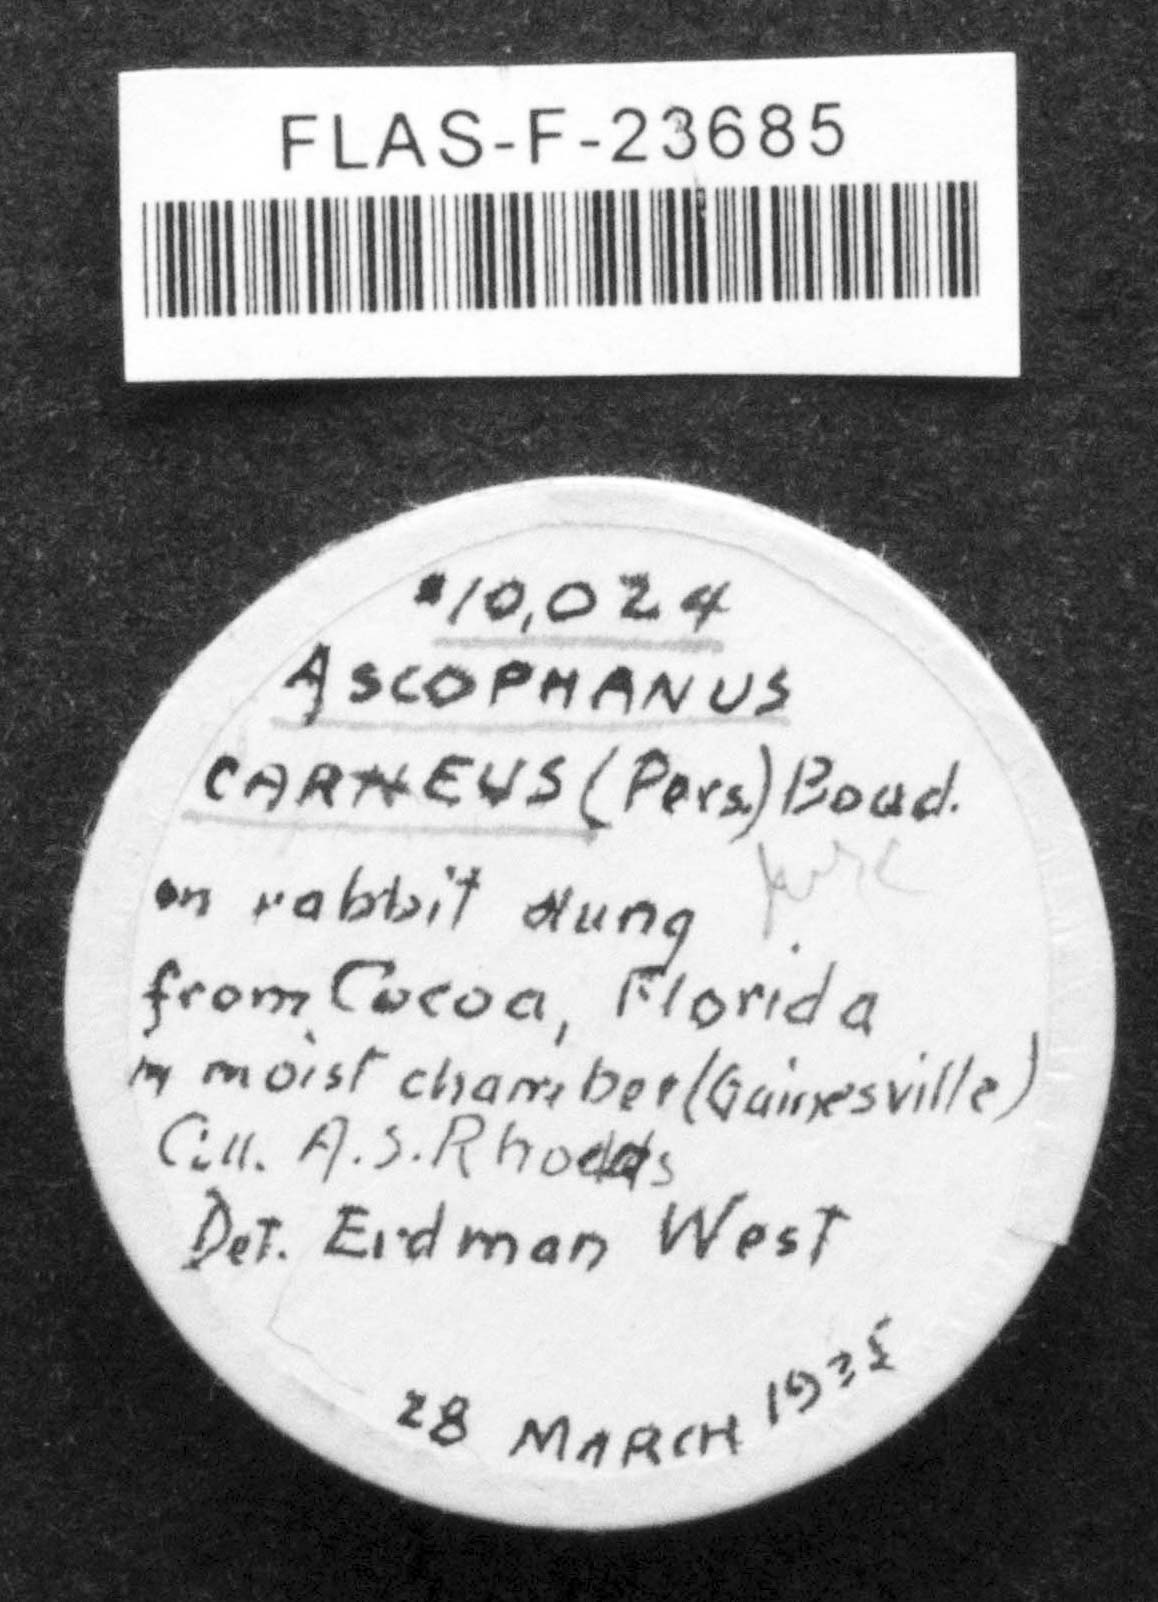 FLAS-F-23685
#10,024
ASCOPHANUS
CARNEUS (Pers.) Boud.
on rabbit dung
from Cocoa, Florida
in moist chamber (Gainesville)
Coll. A.S. Rhoads
Det. Erdman West
28 MARCH 1935